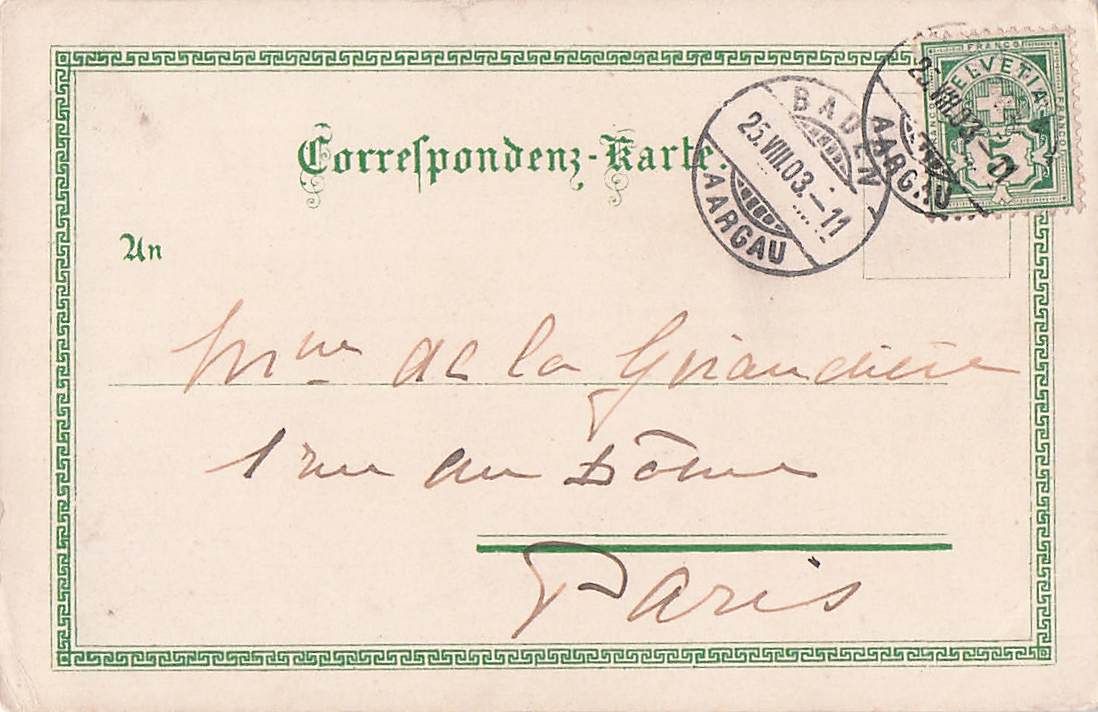 FRANCO
HELVETIA
FRANCO
5
BADEN
25.VIII.03.–11
AARGAU
25.VIII.03.–11
AARGAU
Correspondenz-Karte.
An
Mme de la Girandière
1 rue du Dôme
Paris